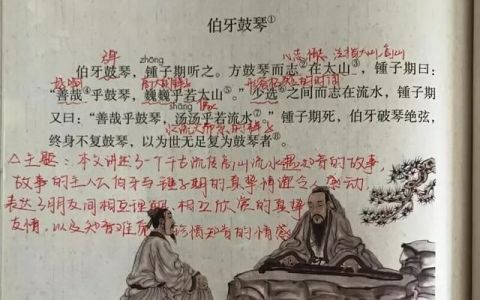 伯牙鼓琴①
弹
zhōng
心志 情怀
伯牙鼓琴，锺子期听之。方鼓琴而志②在太山③，锺子期曰：
“善哉④乎鼓琴，巍巍乎若太山⑤。”少选⑥之间而志在流水，锺子期
shāng
又曰：“善哉乎鼓琴，汤汤乎若流水⑦。”锺子期死，伯牙破琴绝弦，
终身不复鼓琴，以为世无足复为鼓琴者⑧。
△主题：本文讲述了一个千古流传高山流水遇知音的故事，
故事的主人公伯牙与锺子期的真挚情谊令人感动，
表达了朋友间相互理解、相互欣赏的真挚
友情，以及知音难觅 珍惜知音的情感